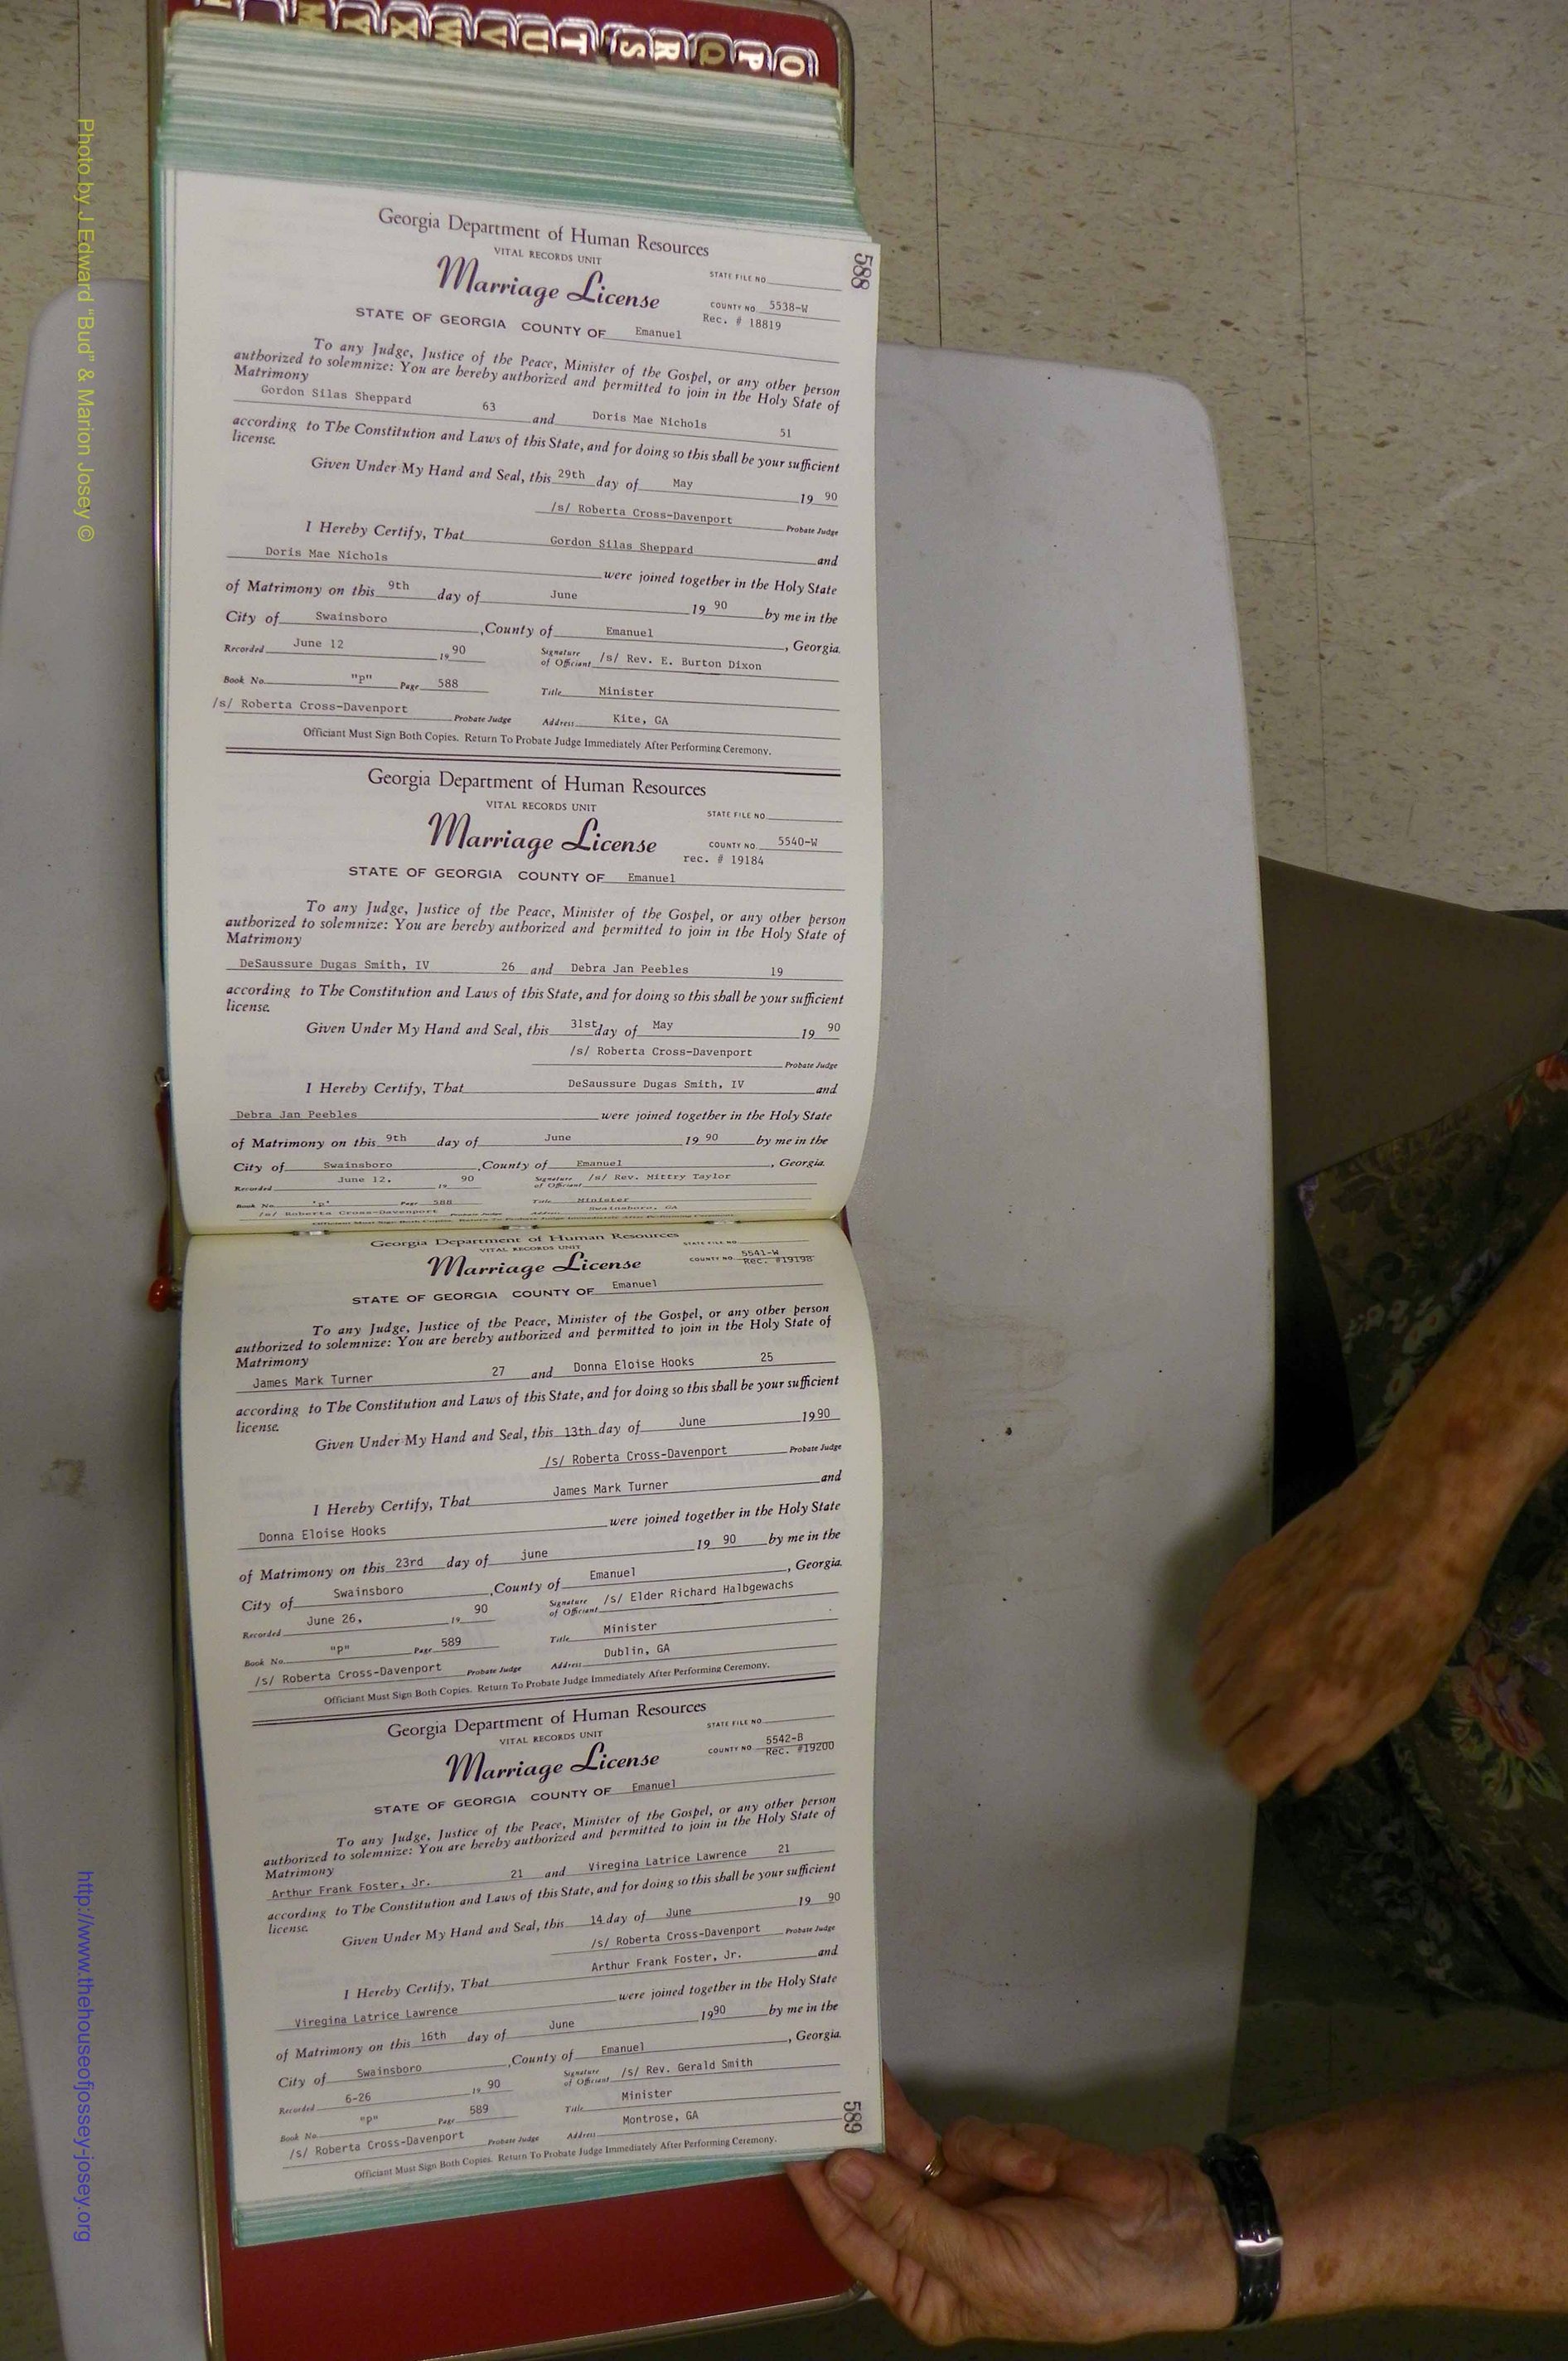 O P Q R S T U V W X Y M
588
Georgia Department of Human Resources
VITAL RECORDS UNIT
STATE FILE NO.
Marriage License
COUNTY NO. 5538-W
Rec. # 18819
STATE OF GEORGIA COUNTY OF Emanuel
To any Judge, Justice of the Peace, Minister of the Gospel, or any other person
authorized to solemnize: You are hereby authorized and permitted to join in the Holy State of
Matrimony
Gordon Silas Sheppard 63 and Doris Mae Nichols 51
according to The Constitution and Laws of this State, and for doing so this shall be your sufficient
license.
Given Under My Hand and Seal, this 29th day of May 19 90
/s/ Roberta Cross-Davenport Probate Judge
I Hereby Certify, That Gordon Silas Sheppard and
Doris Mae Nichols were joined together in the Holy State
of Matrimony on this 9th day of June 19 90 by me in the
City of Swainsboro, County of Emanuel, Georgia.
Recorded June 12 19 90 Signature of Officiant /s/ Rev. E. Burton Dixon
Book No. "P" Page 588 Title Minister
/s/ Roberta Cross-Davenport Probate Judge Address Kite, GA
Officiant Must Sign Both Copies. Return To Probate Judge Immediately After Performing Ceremony.
Georgia Department of Human Resources
VITAL RECORDS UNIT
STATE FILE NO.
Marriage License
COUNTY NO. 5540-W
rec. # 19184
STATE OF GEORGIA COUNTY OF Emanuel
To any Judge, Justice of the Peace, Minister of the Gospel, or any other person
authorized to solemnize: You are hereby authorized and permitted to join in the Holy State of
Matrimony
DeSaussure Dugas Smith, IV 26 and Debra Jan Peebles 19
according to The Constitution and Laws of this State, and for doing so this shall be your sufficient
license.
Given Under My Hand and Seal, this 31st day of May 19 90
/s/ Roberta Cross-Davenport
Probate Judge
I Hereby Certify, That DeSaussure Dugas Smith, IV and
Debra Jan Peebles were joined together in the Holy State
of Matrimony on this 9th day of June 19 90 by me in the
City of Swainsboro, County of Emanuel, Georgia.
Recorded June 12, 19 90 Signature of Officiant /s/ Rev. Mittry Taylor
Book No. "P" Page 588 Title Minister
/s/ Roberta Cross-Davenport Probate Judge Address Swainsboro, GA
Officiant Must Sign Both Copies. Return To Probate Judge Immediately After Performing Ceremony.
Georgia Department of Human Resources
VITAL RECORDS UNIT
STATE FILE NO.
Marriage License
COUNTY NO. 5541-W
Rec. #19198
STATE OF GEORGIA COUNTY OF Emanuel
To any Judge, Justice of the Peace, Minister of the Gospel, or any other person
authorized to solemnize: You are hereby authorized and permitted to join in the Holy State of
Matrimony
James Mark Turner 27 and Donna Eloise Hooks 25
according to The Constitution and Laws of this State, and for doing so this shall be your sufficient
license.
Given Under My Hand and Seal, this 13th day of June 19 90
/s/ Roberta Cross-Davenport Probate Judge
I Hereby Certify, That James Mark Turner and
Donna Eloise Hooks were joined together in the Holy State
of Matrimony on this 23rd day of june 19 90 by me in the
City of Swainsboro, County of Emanuel, Georgia.
Recorded June 26, 19 90 Signature of Officiant /s/ Elder Richard Halbgewachs
Book No. "P" Page 589 Title Minister
/s/ Roberta Cross-Davenport Probate Judge Address Dublin, GA
Officiant Must Sign Both Copies. Return To Probate Judge Immediately After Performing Ceremony.
Georgia Department of Human Resources
VITAL RECORDS UNIT
STATE FILE NO.
Marriage License
COUNTY NO. 5542-B
Rec. #19200
STATE OF GEORGIA COUNTY OF Emanuel
To any Judge, Justice of the Peace, Minister of the Gospel, or any other person
authorized to solemnize: You are hereby authorized and permitted to join in the Holy State of
Matrimony
Arthur Frank Foster, Jr. 21 and Viregina Latrice Lawrence 21
according to The Constitution and Laws of this State, and for doing so this shall be your sufficient
license.
Given Under My Hand and Seal, this 14 day of June 19 90
/s/ Roberta Cross-Davenport Probate Judge
I Hereby Certify, That Arthur Frank Foster, Jr. and
Viregina Latrice Lawrence were joined together in the Holy State
of Matrimony on this 16th day of June 19 90 by me in the
City of Swainsboro, County of Emanuel, Georgia.
Recorded 6-26 19 90 Signature of Officiant /s/ Rev. Gerald Smith
Book No. "P" Page 589 Title Minister
/s/ Roberta Cross-Davenport Probate Judge Address Montrose, GA
Officiant Must Sign Both Copies. Return To Probate Judge Immediately After Performing Ceremony.
589
Photo by J Edward "Bud" & Marion Josey ©
http://www.thehouseofjossey-josey.org